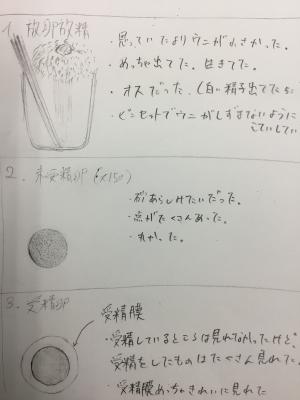 1. 放卵放精
・思っていたよりウニが小さかった。
・めっちゃ出てた。生きてた。
・オスだった。(白い精子出てたから
・ピンセットでウニがしずまないように
こていしてい
2. 未受精卵 (×150)
・砂あらしみたいだった。
・点がたくさんあった。
・丸かった。
3. 受精卵
受精膜
・受精しているところは見れなかったけど、
受精をしたものはたくさん見れた。
・受精膜めっちゃきれいに見れた